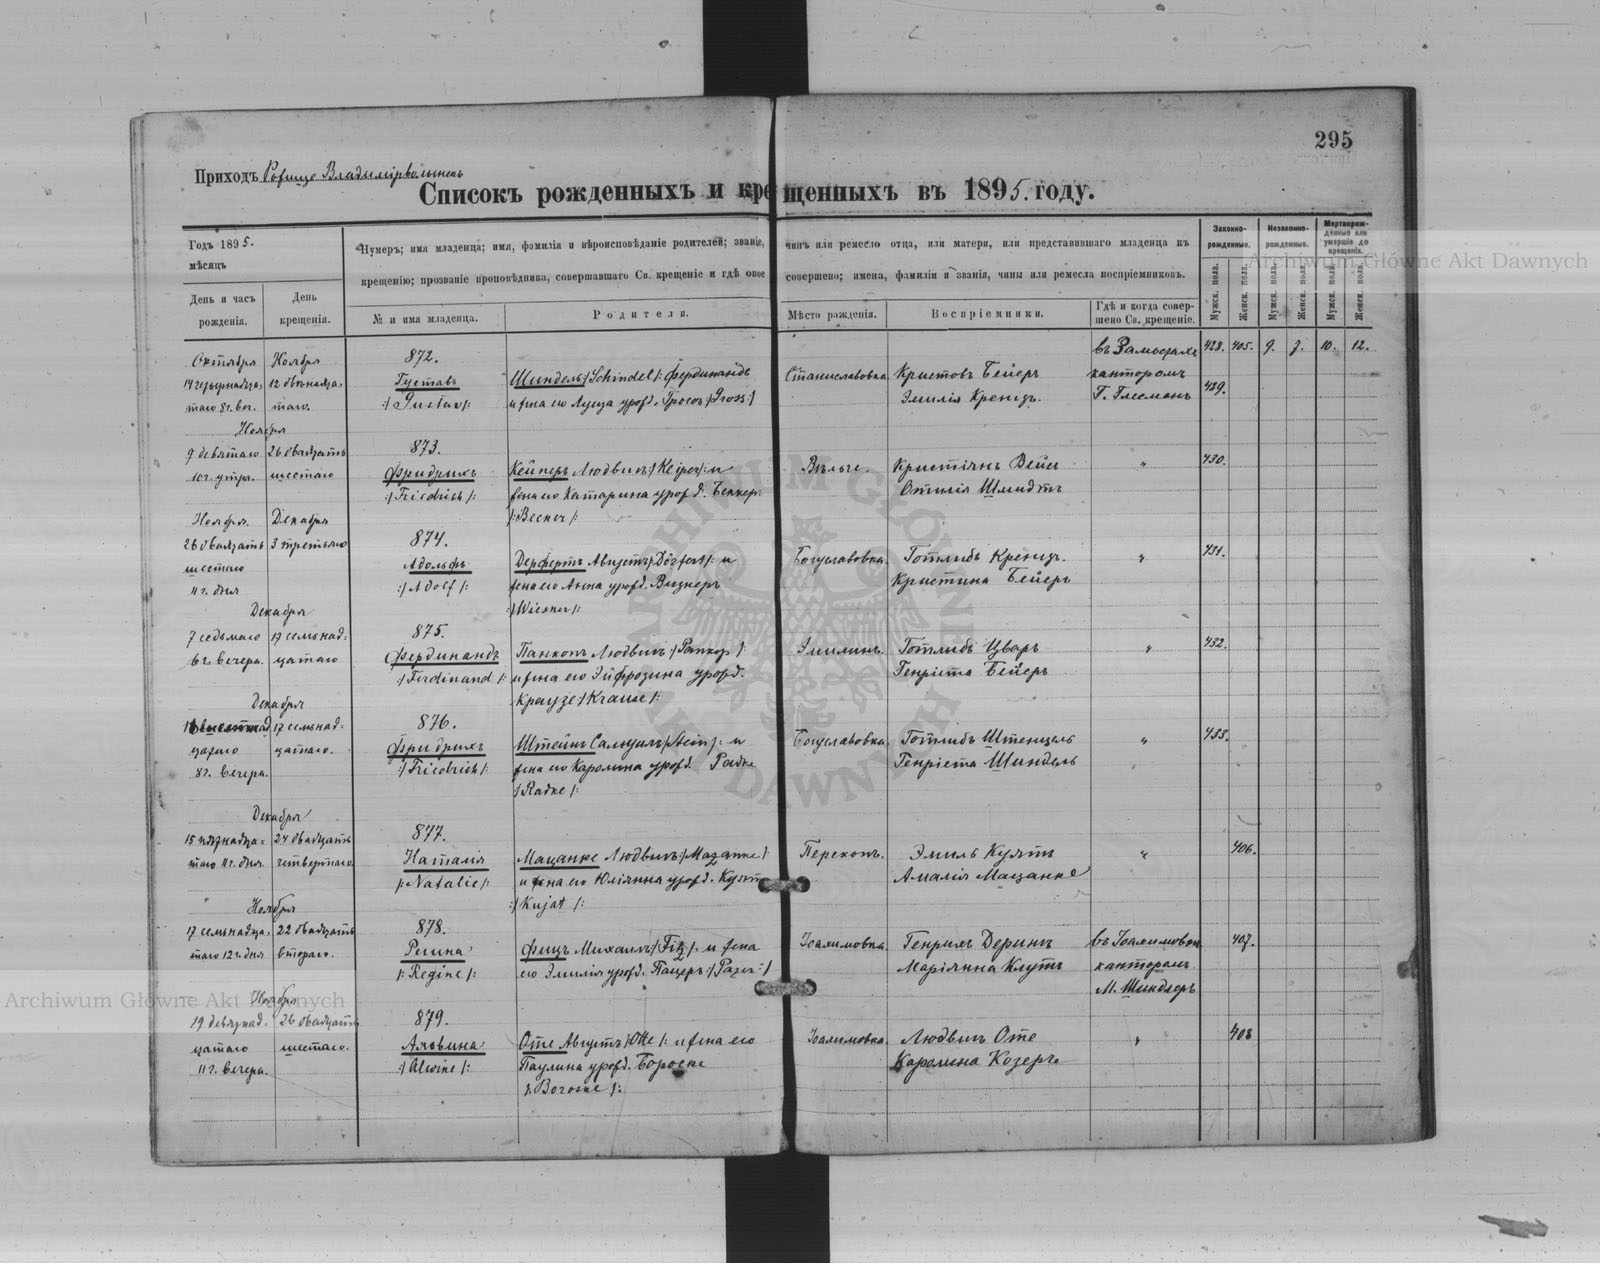 295
Приходъ Рожище Владимірволынск
Списокъ рожденныхъ и крещенныхъ въ 1895. году.
Годъ 1895.
мѣсяцъ
День и часъ рожденія.
День крещенія.
Нумеръ; имя младенца; имя, фамилія и вѣроисповѣданіе родителей; званіе, чинъ или ремесло отца, или матери, или представившаго младенца къ
крещенію; прозваніе проповѣдника, совершавшаго Св. крещеніе и гдѣ оное совершено; имена, фамиліи и званія, чины или ремесла воспріемниковъ.
№ и имя младенца.
Родители.
Мѣсто рожденія.
Воспріемники.
Гдѣ и когда совершено Св. крещеніе.
Законно-рожденные.
Незаконно-рожденные.
Мертворожденные или умершіе до крещенія.
Мужск. пола.
Женск. пола.
Мужск. пола.
Женск. пола.
Мужск. пола.
Женск. пола.
428. 405. 9. 7. 10. 12.
Октября Ноября
872.
въ Замостьѣ
Густавъ
Шиндель /:Schindel/: Фердинандъ
Станиславовка.
Кристовъ Бейеръ
канторомъ
/:Gustav/:
и жена его Луиза урожд. Гросъ /:Gross:/
Эмилія Кренцъ.
429.
Ноября
873.
9 девятаго 26 двадцать
Фридрихъ
Кейперъ Людвигъ /:Keiper/: и
Кристіянъ Вейс
"
430.
10 ч. утра. шестаго
/:Friedrich/:
жена его Катарина урожд. Беккер:
Отилія Шмидтъ
Ноября. Декабря
/:Becker/:
26 двадцать 3 третьяго
874.
шестаго
Адольфъ
Дерфертъ Августъ /:Dörfert/: и
Богуславовка.
Готлибъ Кренцъ.
"
431.
11 ч. дня
/:Adolf/:
жена его Анна урожд. Визнеръ
Кристина Бейеръ
Декабря
/:Wiesner/:
7 седьмаго 17 семьнад=
875.
6 ч. вечера. цатаго
Фердинандъ
Панкопъ Людвигъ /:Pankop/:
Эмилинъ.
Готлибъ Цваръ
"
432.
/:Ferdinand/:
и жена его Эйфрозина урожд.
Генріета Бейеръ
Декабря
Краузе /:Krause/:
17 семьнад=
876.
цатаго цатаго.
Фридрихъ
Штейнъ Самуилъ /:Stein/: и
Богуславовка.
Готлибъ Штенцель
"
433.
8 ч. вечера.
/:Friedrich/:
жена его Каролина урожд. Радке
Генріета Шиндель
/:Radke/:
Декабря
15 пятнадца= 24 двадцать
877.
таго 11 ч. дня. четвертаго.
Наталія
Мацанке Людвигъ /:Mazanke/:
Перекопъ.
Эмиль Куятъ
"
406.
/:Natalie/:
и жена его Юліянна урожд. Куятъ
Амалія Мацанке
Ноября
/:Kujat/:
17 семьнадца= 22 двадцать
878.
таго 12 ч. дня втораго.
Регина
Фицъ Михаилъ /:Fitz/: и жена
Іоахимовка.
Генрихъ Деринъ
въ Іоахимовкѣ
407.
/:Regine/:
его Эмилія урожд. Пацеръ /:Pazer:/
Маріянна Клутъ
канторомъ
М. Шиндлеръ
Ноября
19 девятнад= 26 двадцать
879.
цатаго шестаго.
Альвина
Оте Августъ /:Otte/: и жена его
Іоахимовка.
Людвигъ Оте
"
408
11 ч. вечера.
/:Alwine/:
Паулина урожд. Бороске
Каролина Козеръ
/:Boroske/:
Archiwum Główne Akt Dawnych
Archiwum Główne Akt Dawnych
ARCHIWUM GŁÓWNE AKT DAWNYCH